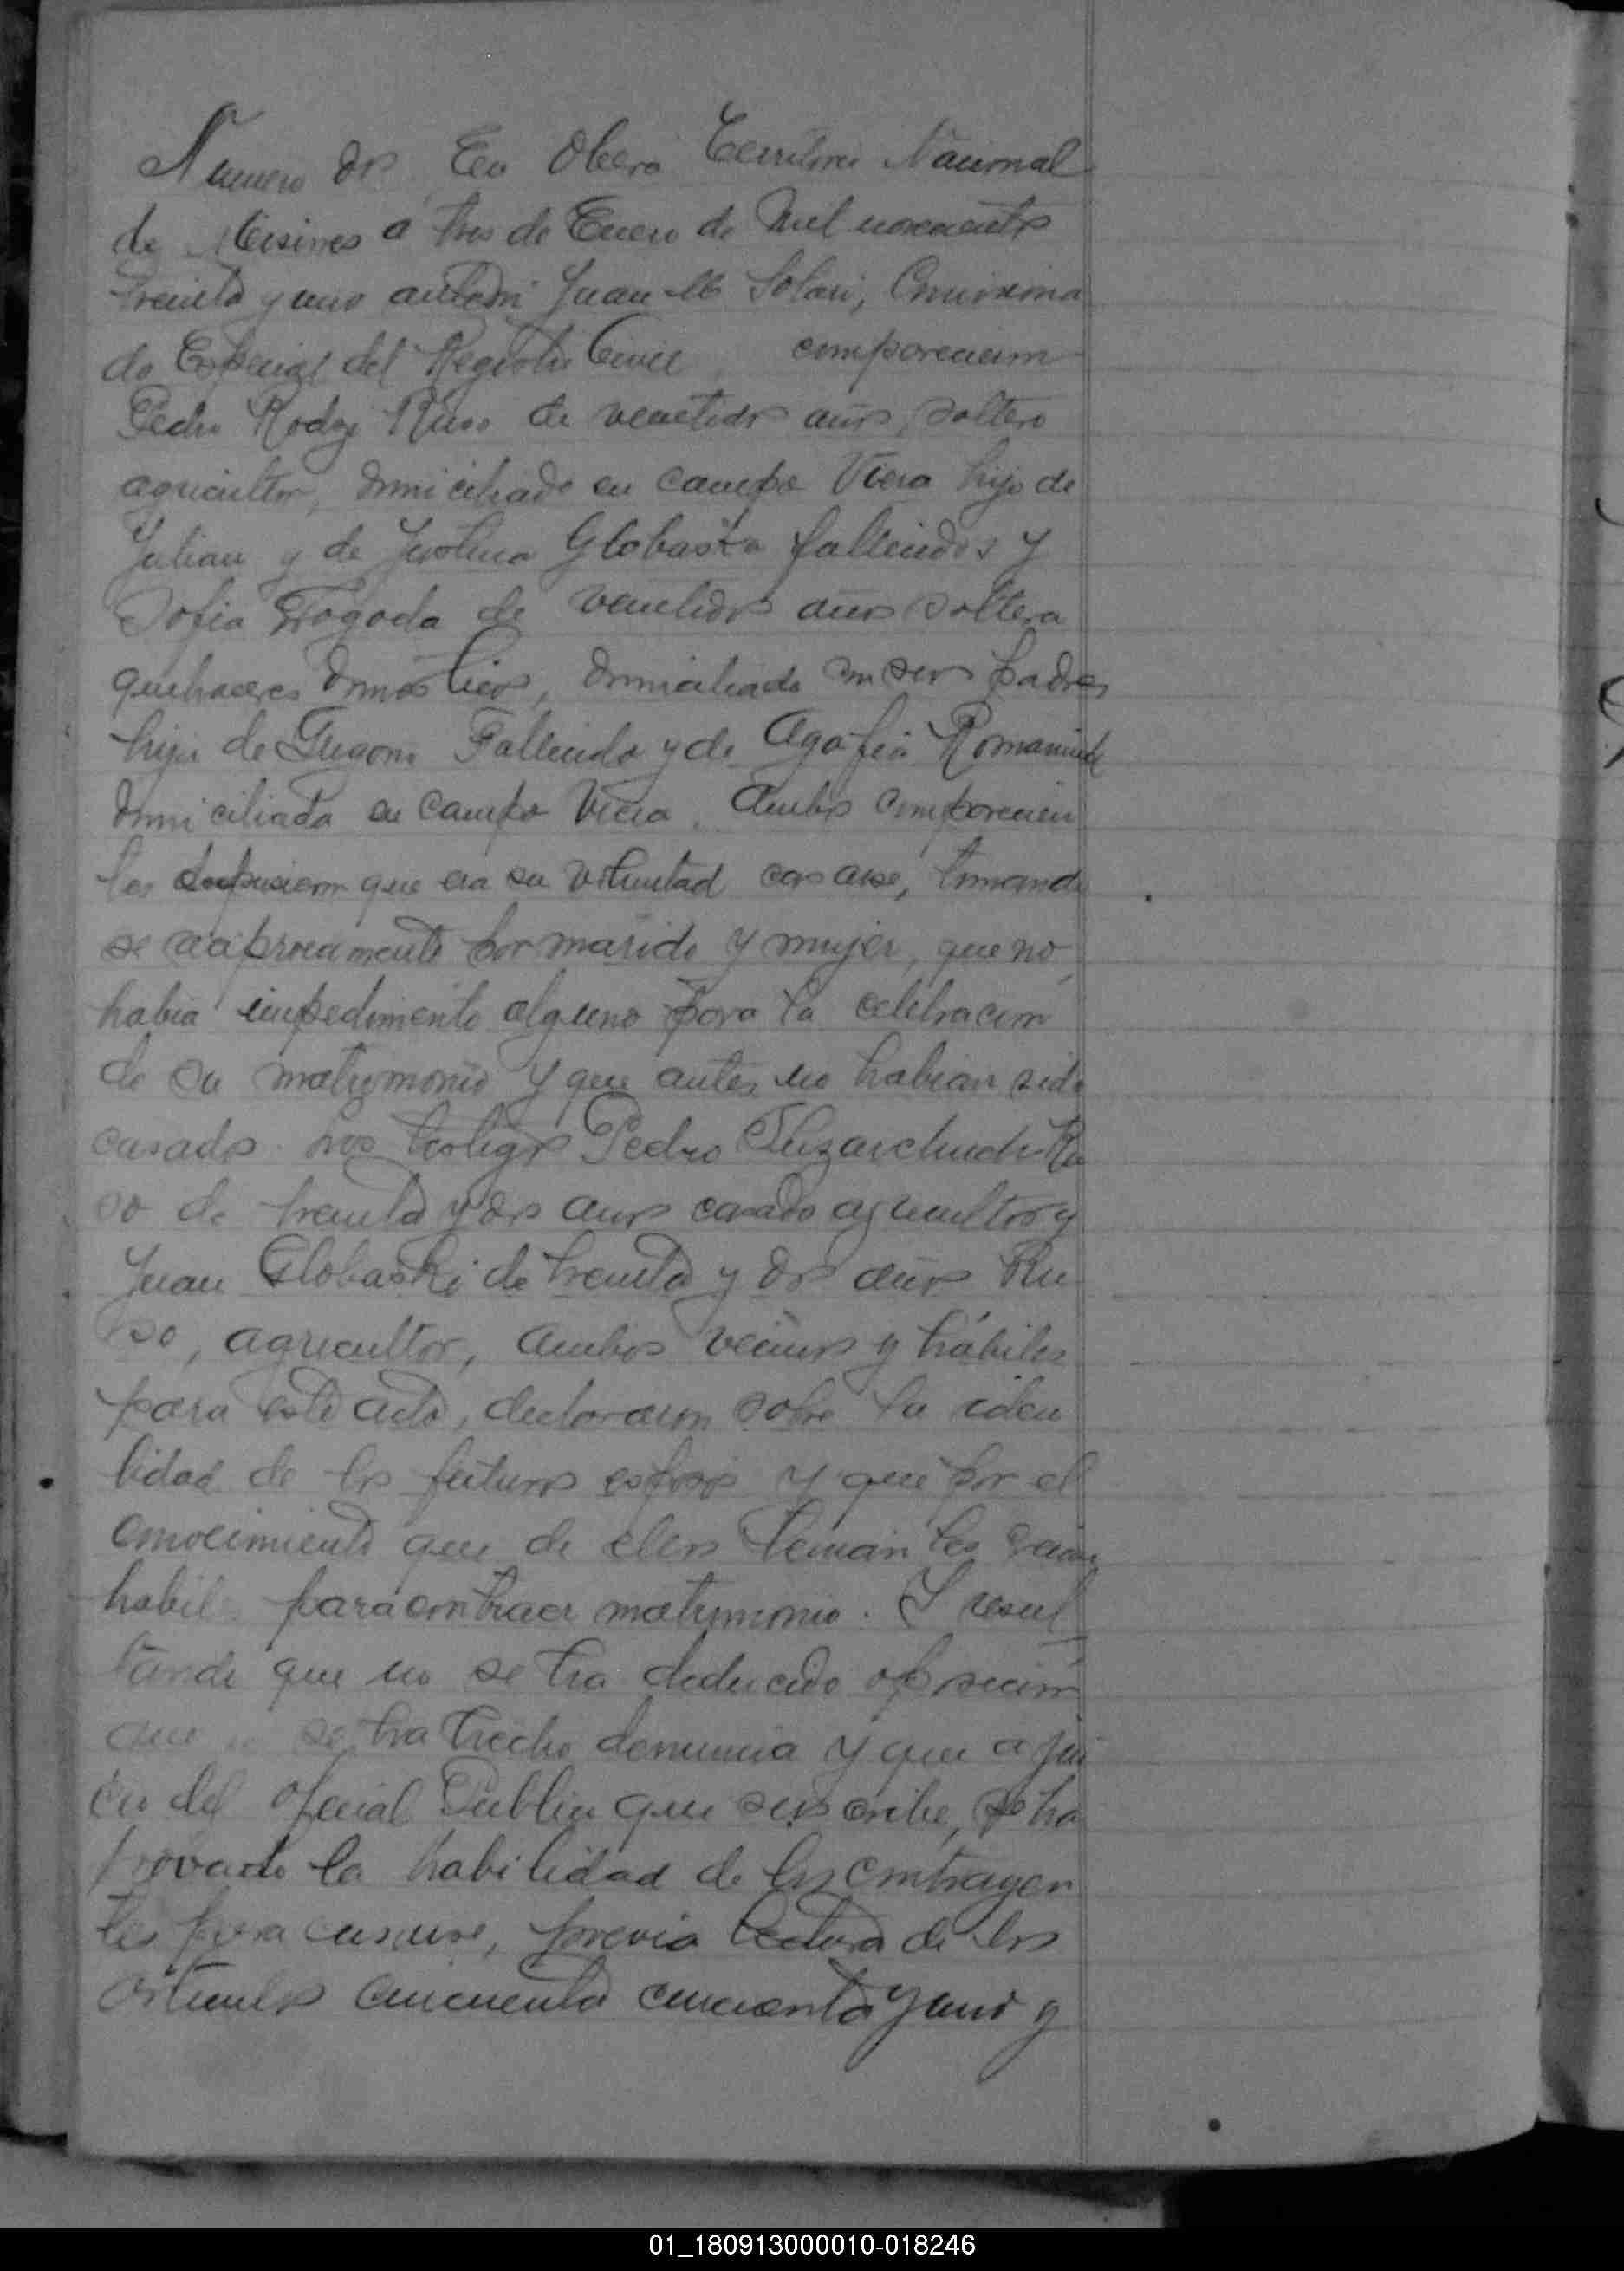 Numero dos En Obera Territorio Nacional
de Misiones a tres de Enero de mil novecientos
treinta y uno ante mi Juan M Solari, Comisiona
do Especial del Registro Civil comparecieron
Pedro Rodz Ruso de veintidos años, soltero
agricultor, domiciliado en campo Viera hijo de
Julian y de Globaska fallecidos y
Sofia Pogoda de veintidos años soltera
quehaceres domesticos, domiciliada con sus padres
hija de Fallecido y de Agafia
domiciliada en Campo Viera. Ambos comparecien
tes expusieron que era su voluntad casarse, tomando
se reciprocamente por marido y mujer, que no
habia impedimento alguno para la celebracion
de su matrimonio y que antes no habian sido
casados. Los testigos Pedro Ru
so de treinta y dos años casado agricultor y
Juan Globaski de treinta y dos años Ru
so, agricultor, ambos vecinos y hábiles
para este acto, declararon sobre la iden
tidad de los futuros esposos y que por el
conocimiento que de ellos tenian los creian
habil para contraer matrimonio. Y resul
tando que no se ha deducido oposicion
que se ha hecho denuncia y que a jui
cio del oficial Publico que suscribe, se ha
provado la habilidad de los contrayen
tes para casarse, previa lectura de los
articulos cincuenta cincuenta y uno y
01_180913000010-018246